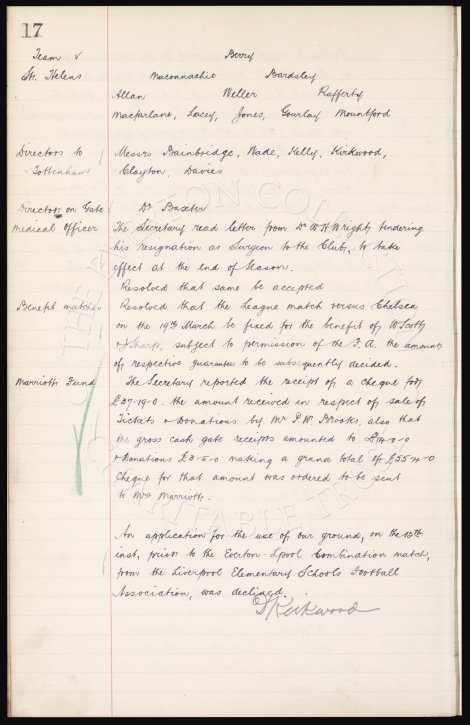 17
Team v Berry
St. Helens Maconnachie Bardsley
Allan Weller Rafferty
Macfarlane, Lacey, Jones, Gourlay Mountford
Directors to Messrs Bainbridge, Wade, Kelly, Kirkwood,
Tottenham Clayton, Davies
Directors on Gate Dr Baxter
Medical Officer The Secretary read letter from Dr W H Wright, tendering
his resignation as Surgeon to the Club, to take
effect at the end of Season.
Resolved that same be accepted
Benefit matches Resolved that the League match versus Chelsea
on the 19th March be fixed for the benefit of W Scott
& Sharp, subject to permission of the F.A. the amount
of respective guarantee to be subsequently decided.
Marriott Fund The Secretary reported the receipt of a cheque for
£37-19-0. the amount received in respect of sale of
Tickets & Donations by Mr P. W. Brooks, also that
the gross cash gate receipts amounted to £14-0-0
& Donations £3-5-0 making a grand total of £55-4-0
Cheque for that amount was ordered to be sent
to Mrs Marriott.
An application for the use of our ground, on the 15th
inst, prior to the Everton-Lpool Combination match,
from the Liverpool Elementary Schools Football
Association, was declined.
D Kirkwood
THE EVERTON COLLECTION
CHARITABLE TRUST